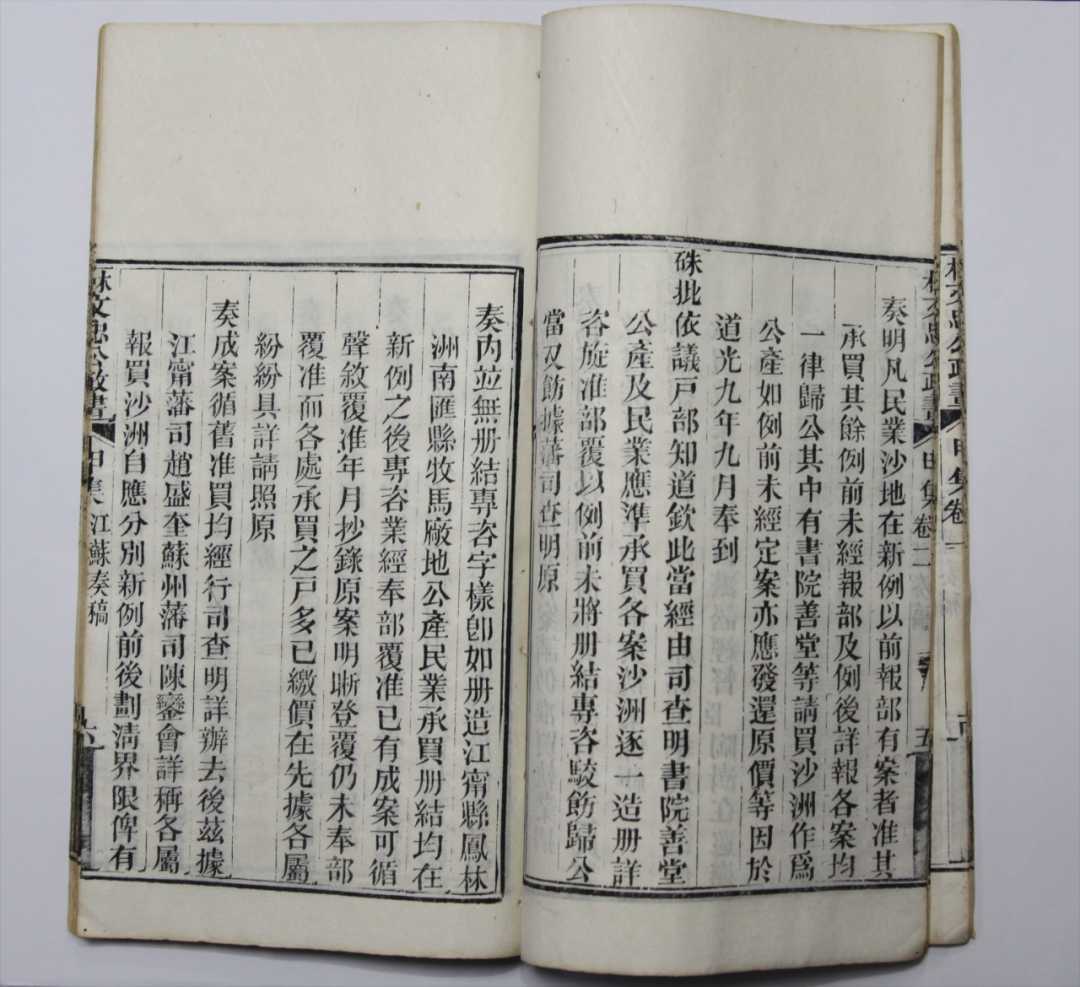 奏明凡民業沙地在新例以前報部有案者准其
承買其餘例前未經報部及例後詳報各案均
一律歸公其中有書院善堂等請買沙洲作爲
公產如例前未經定案亦應發還原價等因於
道光九年九月奉到
硃批依議戸部知道欽此當經由司查明書院善堂
公產及民業應準承買各案沙洲逐一造册詳
咨旋准部覆以例前未將册結專咨駮飭歸公
當又飭據藩司查明原
奏內並無册結專咨字樣卽如册造江甯縣鳳林
洲南匯縣牧馬廠地公產民業承買册結均在
新例之後專咨業經奉部覆准已有成案可循
聲敘覆准年月抄錄原案明晰登覆仍未奉部
覆准而各處承買之戸多已繳價在先據各屬
紛紛具詳請照原
奏成案循舊准買均經行司查明詳辦去後茲據
江甯藩司趙盛奎蘇州藩司陳鑾會詳稱各屬
報買沙洲自應分別新例前後劃淸界限俾有
林文忠公政書 甲集 江蘇奏稿 六
林文忠公政書 甲集卷二 五
林文忠公政書 甲集卷